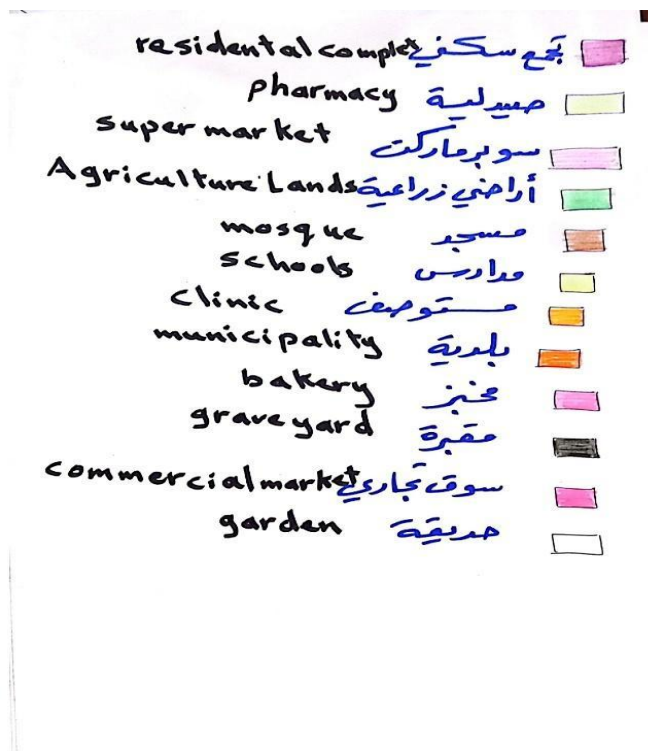 residental complet تجمع سكني
pharmacy صيدلية
super market سوبر ماركت
Agriculture Lands أراضي زراعية
mosque مسجد
schools مدارس
clinic مستوصف
municipality بلدية
bakery مخبز
grave yard مقبرة
commercial market سوق تجاري
garden حديقة